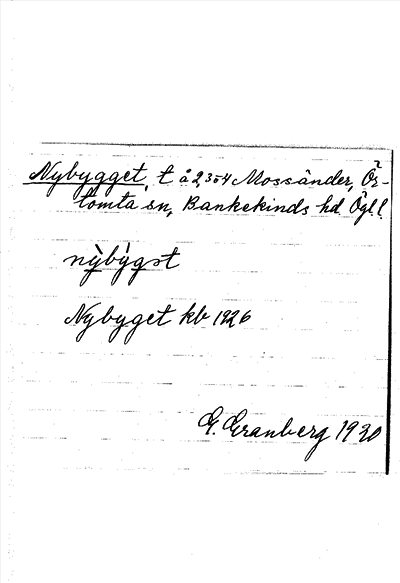 Nybygget, t å 2,354 Mossänder, Ör-
tomta sn, Bankekinds hd. Ögl.
nỳbỳgət
Nybyget kb 1926
G. Granberg 1930